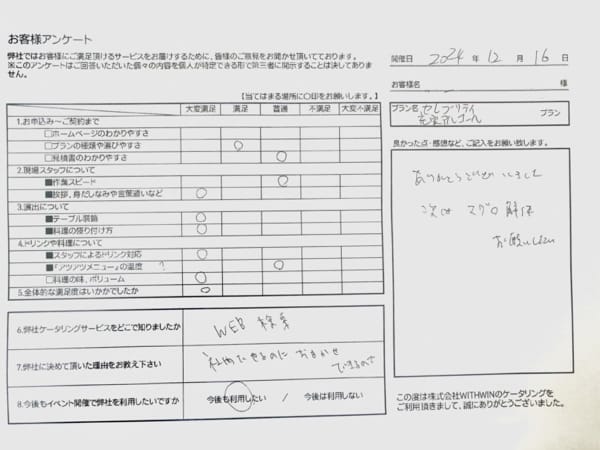 お客様アンケート
弊社ではお客様にご満足頂けるサービスをお届けするために、皆様のご意見をお聞かせ頂いております。
※このアンケートはご回答いただいた個々の内容を個人が特定できる形で第三者に開示することは決してありま
せん。
【当てはまる場所に〇印をお願いします。】
大変満足 満足 普通 不満足 大変不満足
1.お申込み~ご契約まで
□ホームページのわかりやすさ
□プランの種類や選びやすさ ○
□見積書のわかりやすさ ○
2.現場スタッフについて
■作業スピード ○
■挨拶、身だしなみや言葉遣いなど ○
3.演出について
■テーブル装飾 ○
■料理の盛り付け方 ○
4.ドリンクや料理について
■スタッフによるドリンク対応 ○
■「アツアツメニュー」の温度 ? ○
□料理の味、ボリューム ○
5.全体的な満足度はいかがでしたか ○
6.弊社ケータリングサービスをどこで知りましたか WEB 検索
7.弊社に決めて頂いた理由をお教え下さい
おまかせ
できるので
8.今後もイベント開催で弊社を利用したいですか 今後も利用したい / 今後は利用しない
開催日 2024 年 12 月 16 日
お客様名 様
プラン名 セレブリティ
充実アルコール プラン
良かった点・感想など、ご記入をお願い致します。
ありがとうございました
次は マグロ解体
お願いしたい
この度は株式会社WITHWINのケータリングを
ご利用頂きまして、誠にありがとうございました。